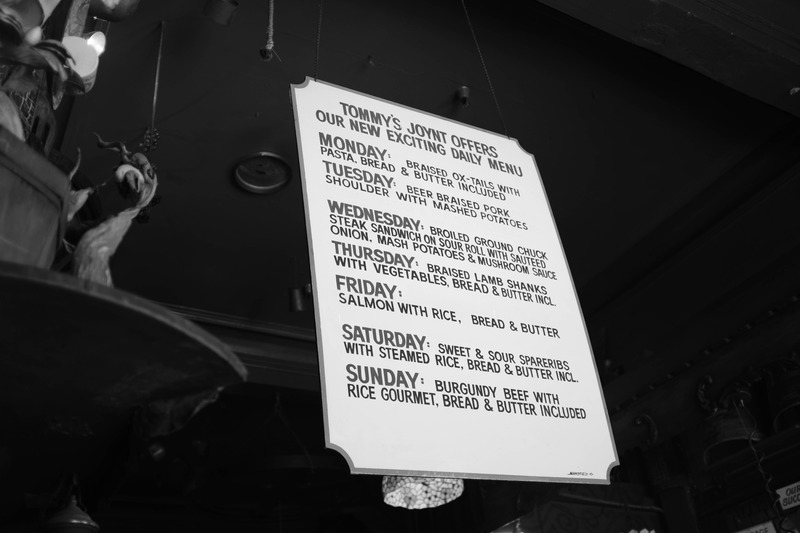 TOMMY'S JOYNT OFFERS
OUR NEW EXCITING DAILY MENU
MONDAY: BRAISED OX-TAILS WITH
PASTA, BREAD & BUTTER INCLUDED
TUESDAY: BEER BRAISED PORK
SHOULDER WITH MASHED POTATOES
WEDNESDAY: BROILED GROUND CHUCK
STEAK SANDWICH ON SOUR ROLL WITH SAUTEED
ONION, MASH POTATOES & MUSHROOM SAUCE
THURSDAY: BRAISED LAMB SHANKS
WITH VEGETABLES, BREAD & BUTTER INCL.
FRIDAY:
SALMON WITH RICE, BREAD & BUTTER
SATURDAY: SWEET & SOUR SPARERIBS
WITH STEAMED RICE, BREAD & BUTTER INCL.
SUNDAY: BURGUNDY BEEF WITH
RICE GOURMET, BREAD & BUTTER INCLUDED